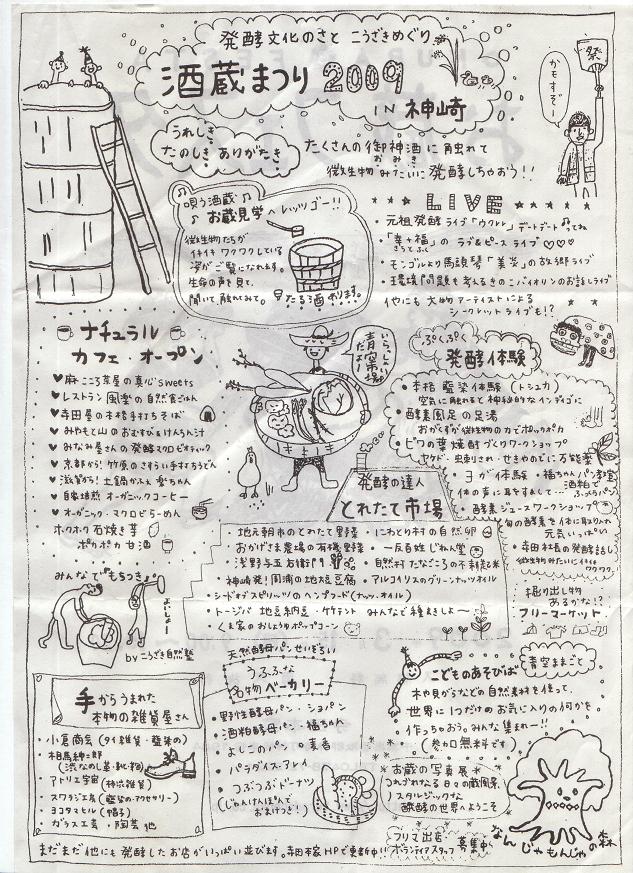 発酵文化のさと こうざきめぐり
酒蔵まつり 2009
IN 神崎
祭
かもすぞー
うれしき
たのしき ありがたき
たくさんの御神酒に触れて
おみき
微生物みたいに発酵しちゃおう!!
唄う酒蔵
お蔵見学へレッツゴー!!
微生物たちが
イキイキワクワクしている
姿がご覧になれます。
生命の声を見て、
聞いて、触れてみて。
たる酒あります。
LIVE
・元祖発酵ライブ「ウクレレ」デートデートってね
・「幸+福」のラブ&ピースライブ♡♡♡
・モンゴルより馬頭琴「美炎」の故郷ライブ
・環境問題を考えるきのこバイオリンのお話しライブ
他にも大物アーティストによる
シークレットライブも!?
ナチュラル
カフェ・オープン
♥麻こころ茶屋の真心sweets
♥レストラン風楽の自然食ごはん
♥寺田屋の本格手打ちそば
♥みやもと山のおむすび&けんちん汁
♥みなみ屋さんの発酵マクロビオティック
♥京都から!竹原のさすらい手打ちうどん
♥滋賀から!土鍋かふぇ楽ちゃん
♥自家焙煎オーガニックコーヒー
♥オーガニック・マクロビらーめん
ホクホク 石焼き芋
ポカポカ 甘酒
いらっしゃい
青空市場
だよー
ぷくぷく
発酵体験
・本格藍染体験(トシュカ)
空気に触れると神秘的なインディゴに
・酵素風呂の足湯
おがくずが微生物の力でポッカポカ
・ビワの葉焼酎づくりワークショップ
ヤケド・虫刺され・せきやのどに万能薬
・ヨガ体験
体の声に耳をすまして…
・福ちゃんパン教室
酒粕で
ふっくらパン
・酵素ジュースワークショップ
旬の酵素を体に取り入れ
元気いっぱい
・寺田社長の発酵話し
微生物みたいにイキイキ
ワクワク
発酵の達人
とれたて市場
・地元朝市のとれたて野菜
・にわとり村の自然卵
・おかげさま農場の有機野菜
・一反百姓じねん堂
・浅野与五右衛門
・自然村たなごころの不耕起米
・神崎発!月浦の地大豆豆腐
・アルコイリスのグリーンナッツオイル
・シードオブスピリッツのヘンプフード(ナッツ・オイル)
・トージバ 地豆納豆・ケケテント みんなで種まきしよー
・くま家のおしょうゆポップコーン
みんなで“もちつき”
よいしょー
by こうざき自然塾
掘り出し物
あるかな!?
フリーマーケット
天然酵母パンせいぞろい
うふふな
名物ベーカリー
・野生酵母パン・ショパン
・酒粕酵母パン・福ちゃん
・よしこのパン・麦香
・パラダイス・アレイ
・つぶつぶドーナツ
(じゃんけんぽんで
おまけつき!)
手からうまれた
本物の雑貨屋さん
・小倉商会(タイ雑貨・藍染め)
・相馬紳二郎
(渋なめし革・靴・鞄)
・アトリエ宇宙(柿渋雑貨)
・スワラジ工房(藍染め・アクセサリー)
・ヨコタマヒル(帽子)
・ガラス工芸・陶芸 他
こどものあそびば
青空ままごと
木や貝がらなどの自然素材を使って、
世界に1つだけのお気に入りの何かを
作っちゃおう♪みんな集まれー!!
(参加無料です)
お蔵の写真展
うたがながれる日々の蔵風景
ノスタルジックな
醗酵の世界へようこそ
フリマ出店
ボランティアスタッフ
募集中
なんじゃもんじゃの森
まだまだ他にも発酵したお店がいっぱい並びます。寺田本家HPで更新中!!